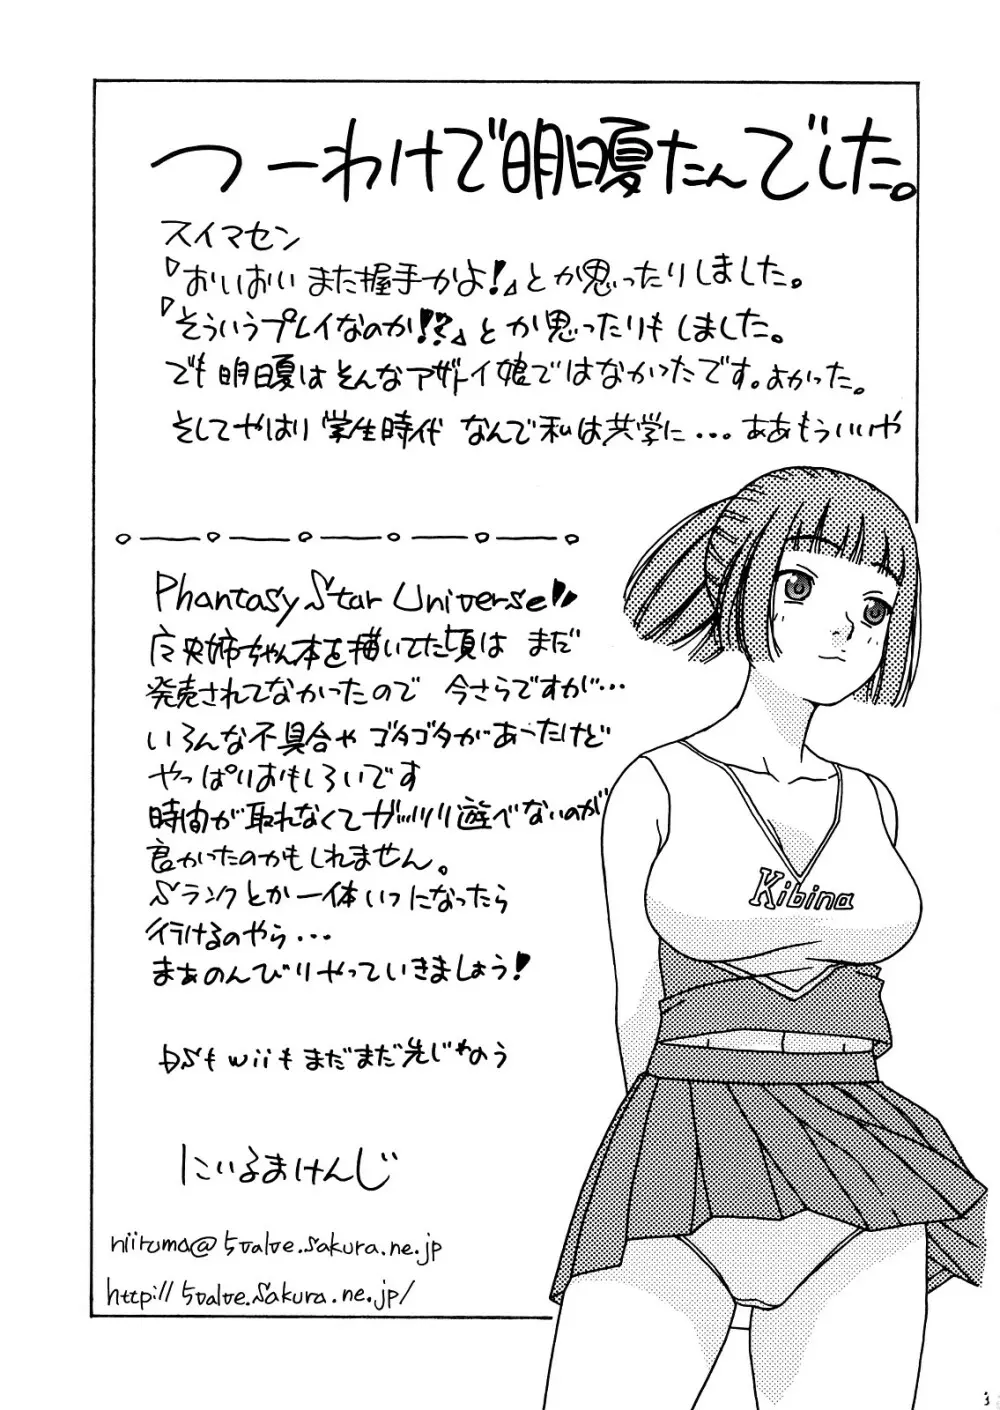 つーわけで明日夏たんでした。
スイマセン
『おいおいまた握手かよ!』とか思ったりしました。
『そういうプレイなのか!?』とか思ったりもしました。
でも明日夏はそんなアザトイ娘ではなかったです。よかった。
そしてやはり学生時代 なんで私は共学に...ああもういいや
Phantasy Star Universe
央姉ちゃん本を描いてた頃は まだ
発売されてなかったので 今さらですが...
いろんな不具合やゴタゴタがあったけど
やっぱりおもしろいです
時間が取れなくてガッツリ遊べないのが
良かったのかもしれません。
Sランクとか一体いつになったら
行けるのやら...
まぁのんびりやっていきましょう!
DSもwiiもまだまだ先じゃのう
にいるまけんじ
niiruma@5valve.sakura.ne.jp
http://5valve.sakura.ne.jp/
Kibina